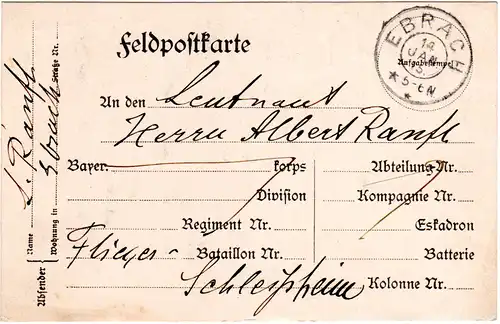 Feldpostkarte
EBRACH
14 JAN
5-6N
Aufgabestempel
An den Leutnant
Herrn Albert Ranft
Bayer. korps Abteilung Nr.
Division Kompagnie Nr.
Regiment Nr. Eskadron
Flieger- Bataillon Nr. Batterie
Schleißheim Kolonne Nr.
Absender
Name L. Ranft
Wohnung in Ebrach Straße Nr.